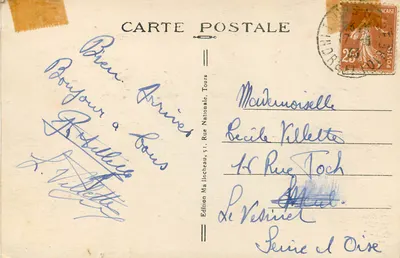 CARTE POSTALE
Bien Arrivés
Bonjour a tous
L. Villette
Edition Malincheau, 51, Rue Nationale, Tours
25c
INDRE
Mademoiselle
Cecile Villette
Rue Foch
Le Vesinet
Seine et Oise